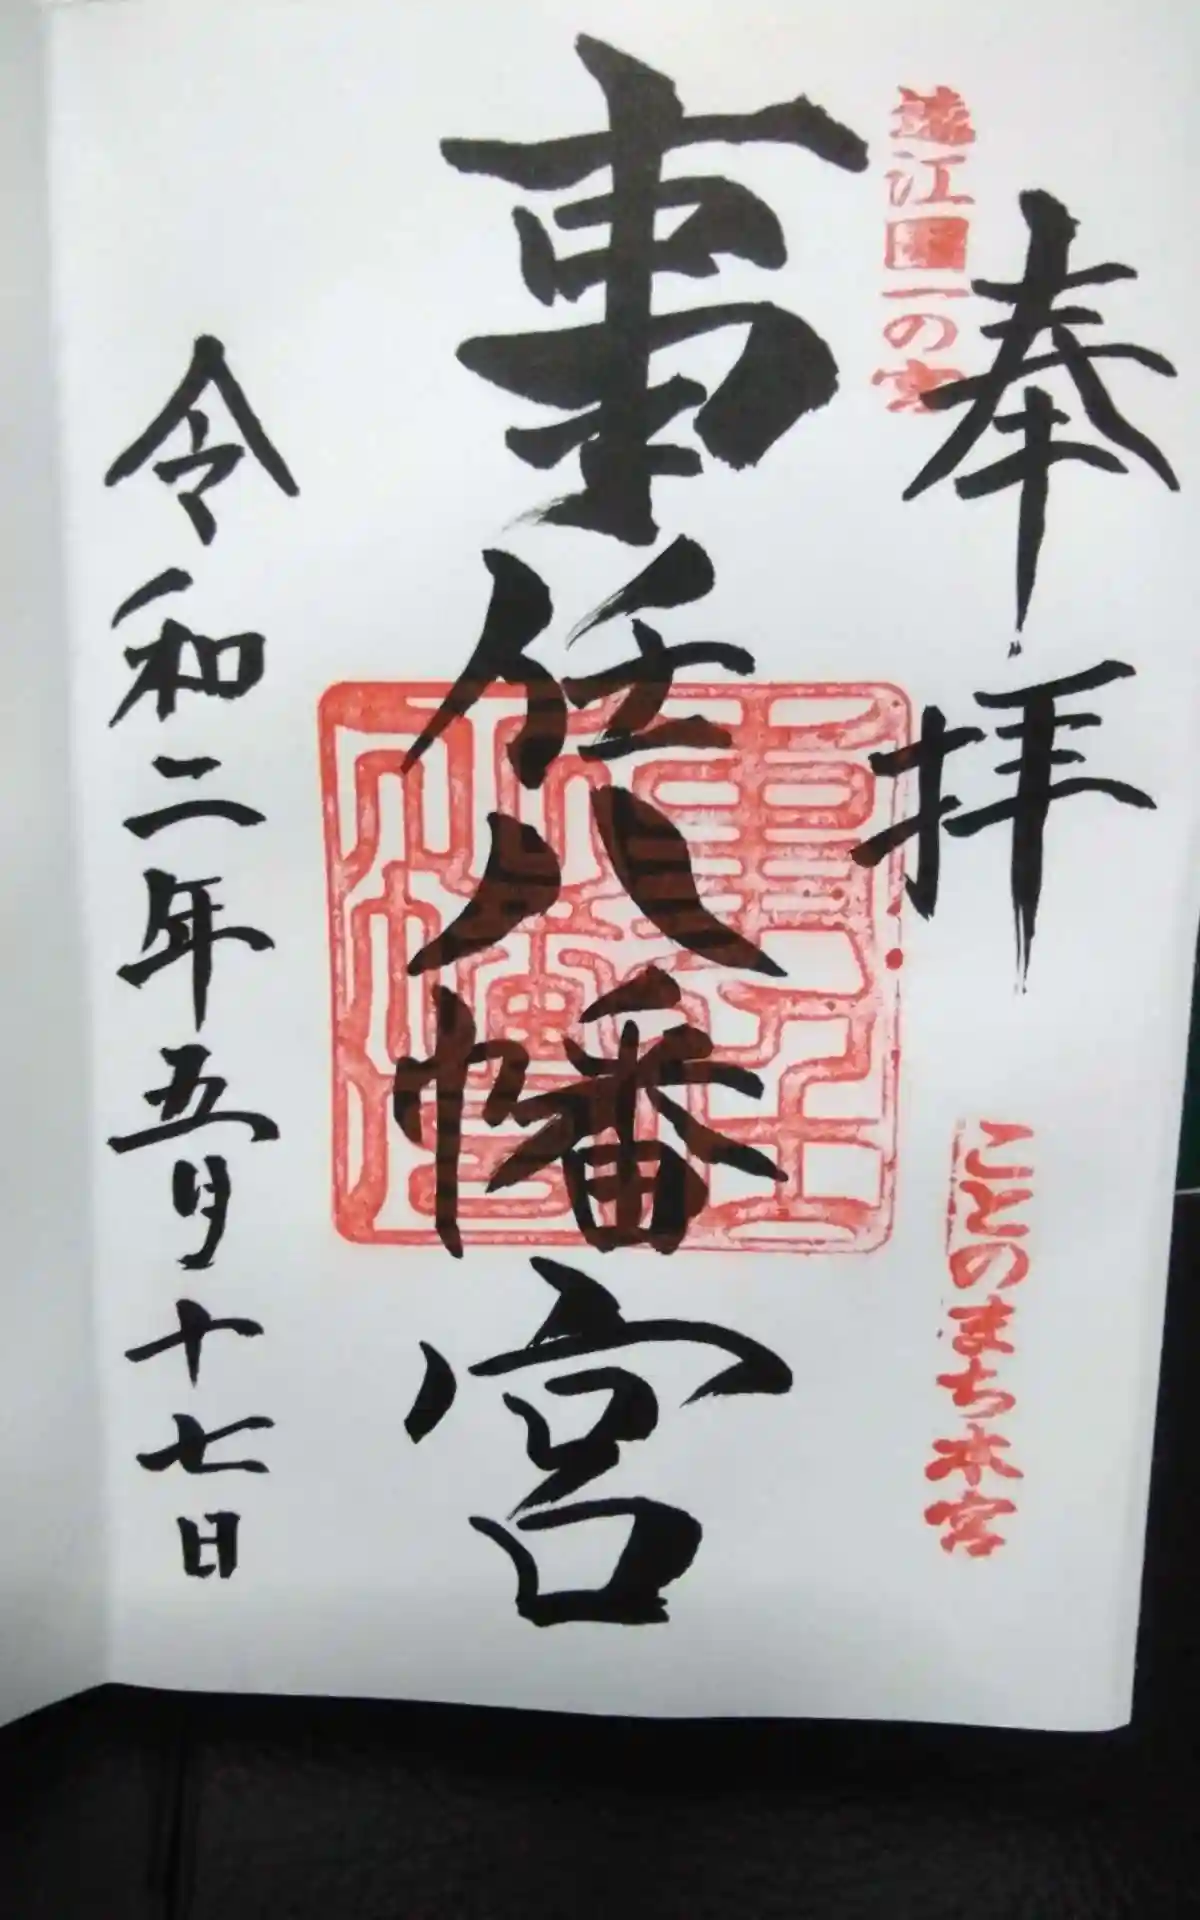 遠江国一の宮
奉拝
ことのまち本宮
事任八幡宮
令和二年五月十七日